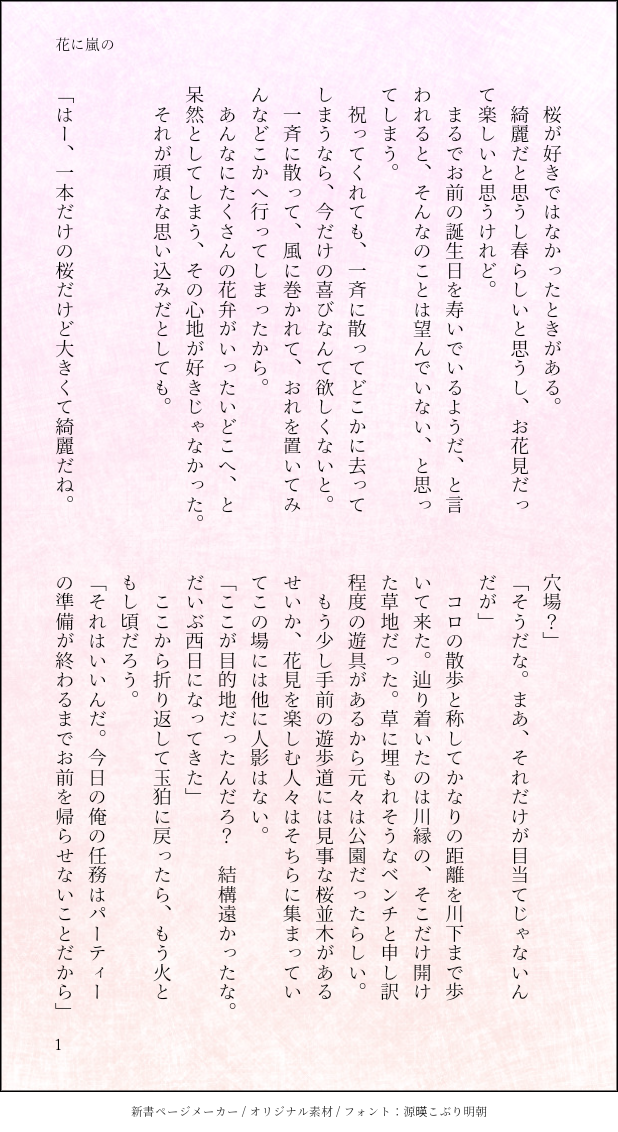 花に嵐の
　桜が好きではなかったときがある。
　綺麗だと思うし春らしいと思うし、お花見だっ
て楽しいと思うけれど。
　まるでお前の誕生日を寿いでいるようだ、と言
われると、そんなのことは望んでいない、と思っ
てしまう。
　祝ってくれても、一斉に散ってどこかに去って
しまうなら、今だけの喜びなんて欲しくないと。
　一斉に散って、風に巻かれて、おれを置いてみ
んなどこかへ行ってしまったから。
　あんなにたくさんの花弁がいったいどこへ、と
呆然としてしまう、その心地が好きじゃなかった。
　それが頑なな思い込みだとしても。
「はー、一本だけの桜だけど大きくて綺麗だね。
穴場？」
「そうだな。まあ、それだけが目当てじゃないん
だが」
　コロの散歩と称してかなりの距離を川下まで歩
いて来た。辿り着いたのは川縁の、そこだけ開け
た草地だった。草に埋もれそうなベンチと申し訳
程度の遊具があるから元々は公園だったらしい。
　もう少し手前の遊歩道には見事な桜並木がある
せいか、花見を楽しむ人々はそちらに集まってい
てこの場には他に人影はない。
「ここが目的地だったんだろ？　結構遠かったな。
だいぶ西日になってきた」
　ここから折り返して玉狛に戻ったら、もう火と
もし頃だろう。
「それはいいんだ。今日の俺の任務はパーティー
の準備が終わるまでお前を帰らせないことだから」
1
新書ページメーカー / オリジナル素材 / フォント：源暎こぶり明朝